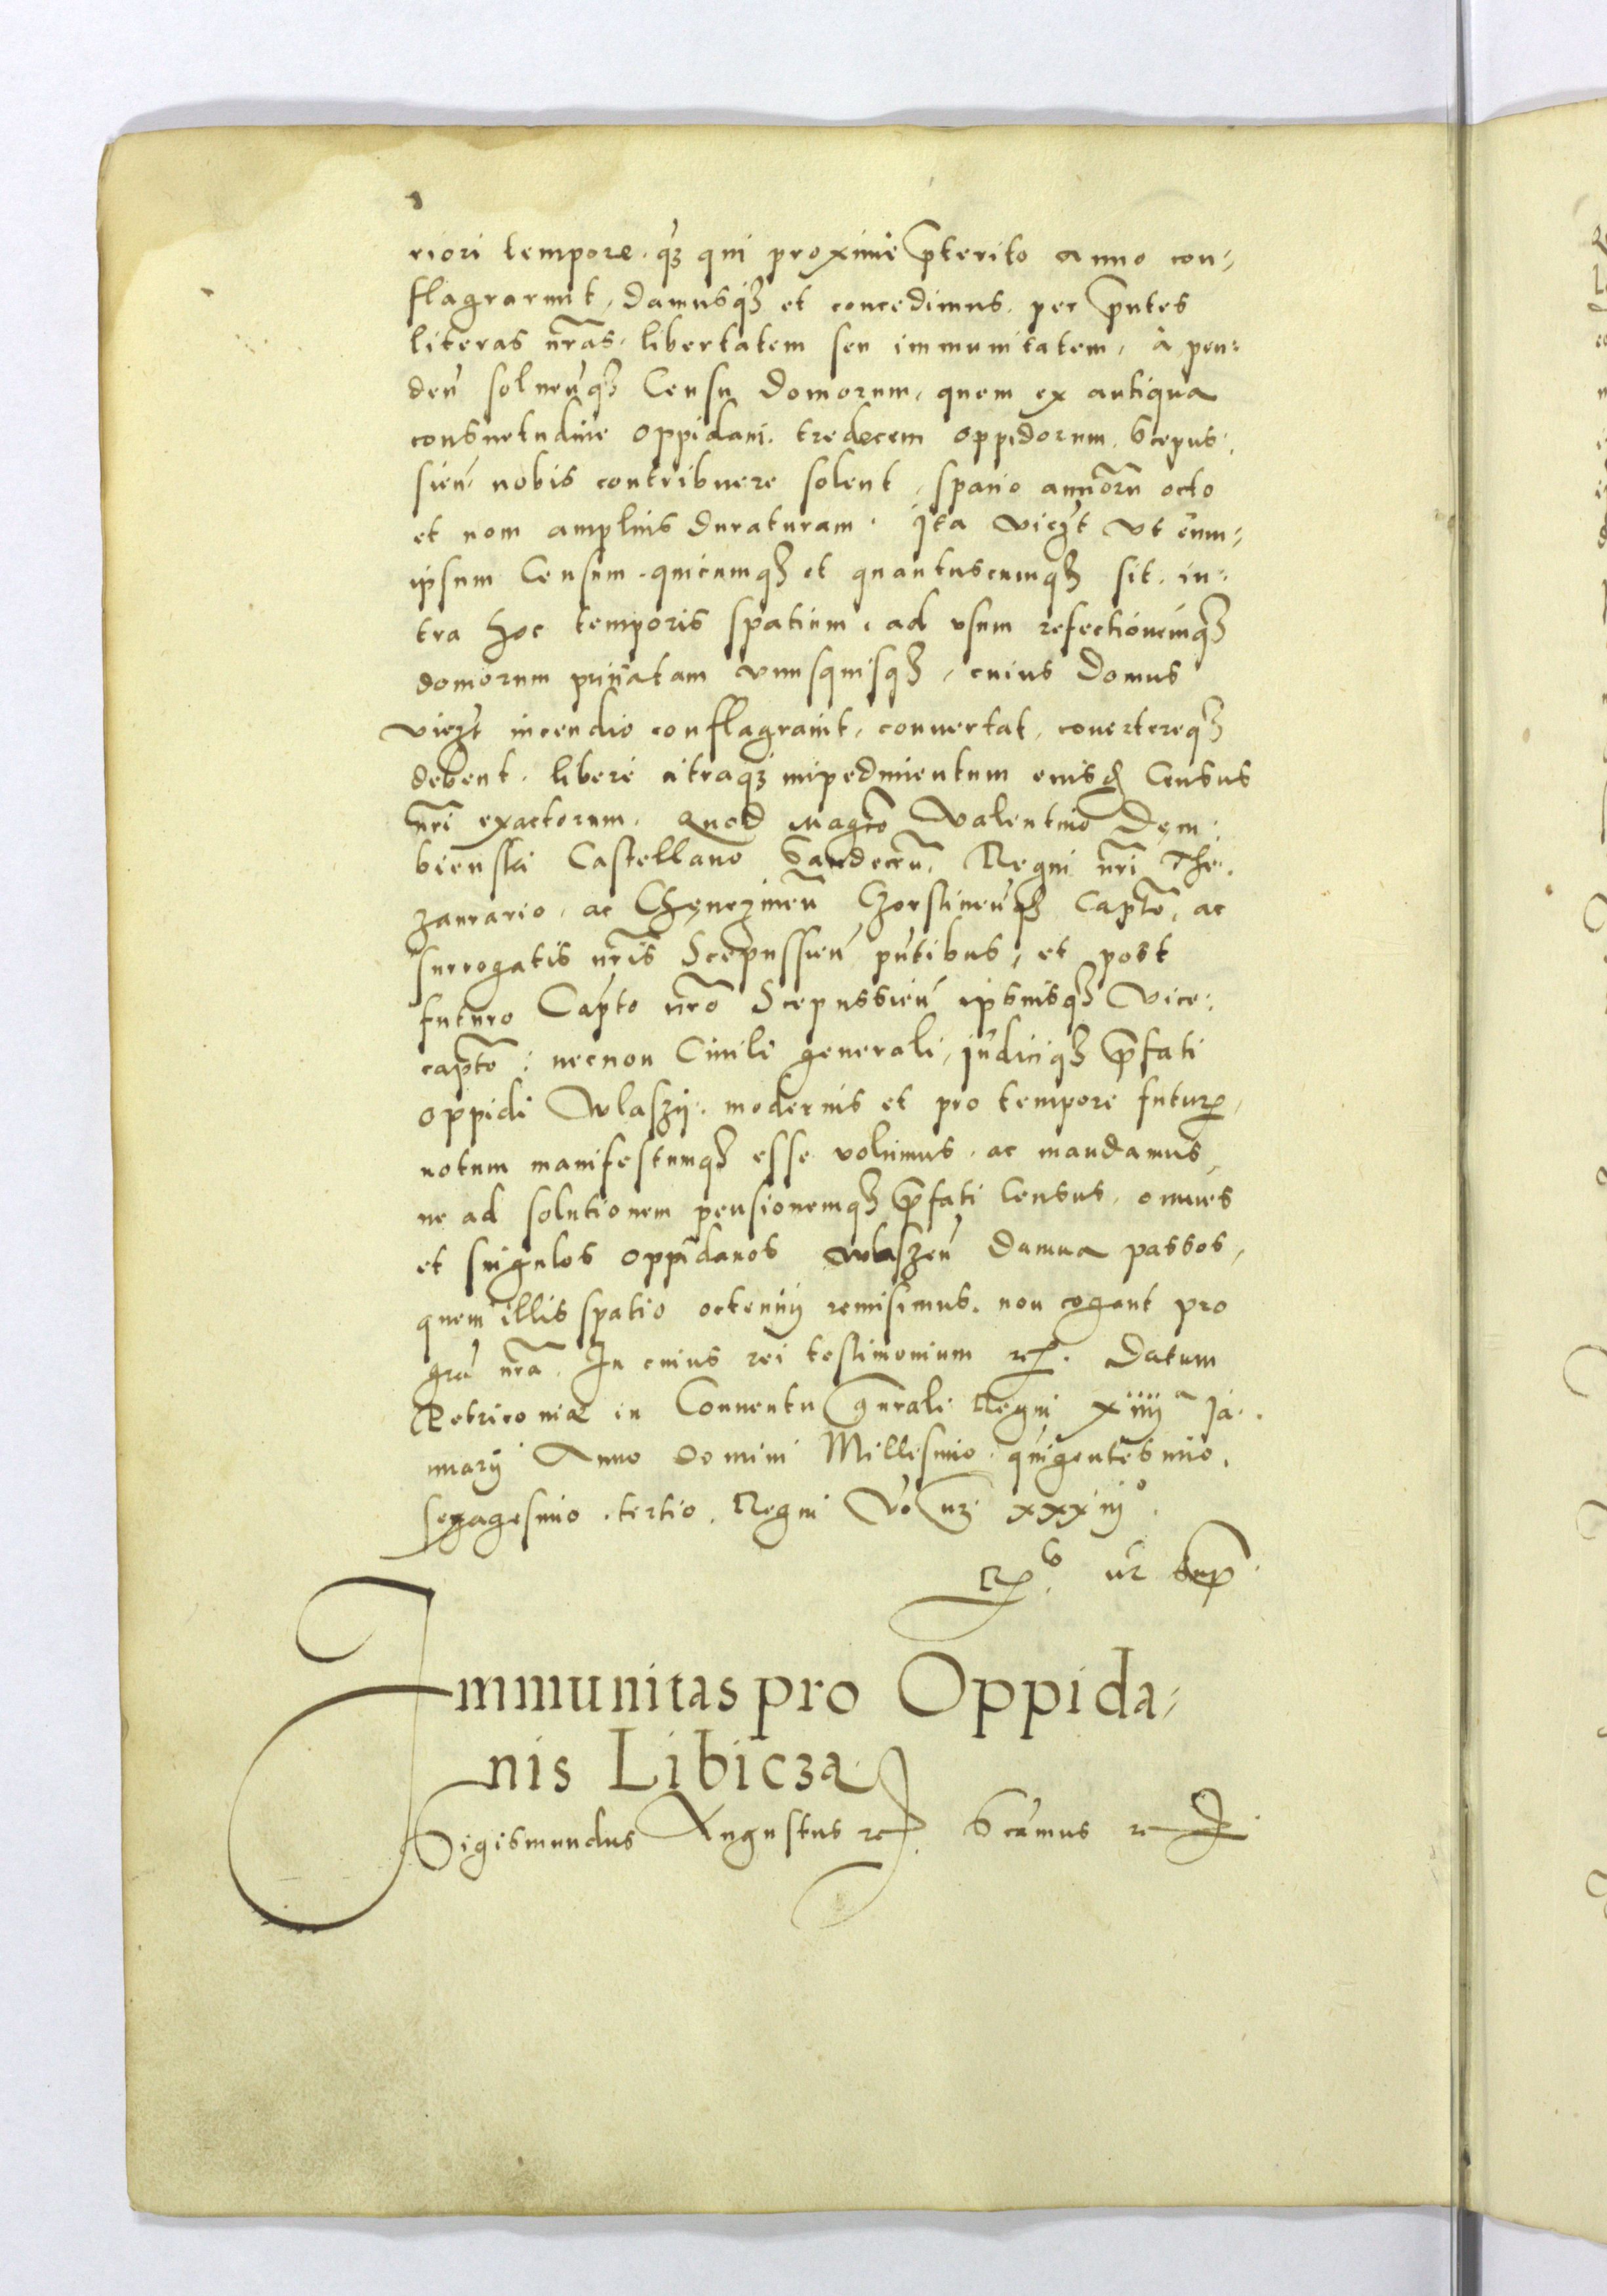 riori tempore. q̃ꝫ qui proxime p̃terito anno con⸗
flagrarunt, damusqꝫ et concedimus. per p̃ntes
literas nr̃as. libertatem seu immunitatem, à pen⸗
deñ solueñqꝫ Censu domorum, quem ex antiqua
consuetudine oppidani. tredecem oppidorum. Scepus⸗
sieñ nobis contribuere solent, spacio annorũ octo
et non amplius duraturam. Ita viczt vt eum⸗
ipsum Censum. quicumqꝫ et quantuscumqꝫ sit. in⸗
tra hoc temporis spatium, ad vsum refectionemqꝫ
domorum priuatam vnusquisqꝫ, cuius domus
viczt incendio conflagrauit, conuertat, cõuertereqꝫ
debent. liberè citraqꝫ impedimentum eiusd̃ Census
nr̃i exactorum. Quod Magco Valentino Dem⸗
bienski Castellano Sandeceñ, Regni nr̃i The⸗
zaurario, ac Chęncineñ Chorstineñqꝫ Capto, ac
surrogatis nr̃is Scepussieñ p̃ntibus, et post
futuro Capto nr̃o Scepussieñ ipsiusqꝫ Vice⸗
capto: necnon Ciuili generali, iudiciqꝫ p̃fati
oppidi Wlaszy. modernis et pro tempore futur̃,
notum manifestumqꝫ esse volumus. ac mandamus,
ne ad solutionem pensionemqꝫ p̃fati Census, omnes
et singulos oppidanos Wlaszeñ damna passos,
quem illis spatio octennij remisimus. non cogant pro
gra͂ nr̃a. In cuius rei testimonium ꝛc. Datum
Petricouiæ in Conuentu gñrali Regni XIIII a Ja⸗
nuarij Anno Domini Millesimo. quigentesimo.
sexagesimo. tertio. Regni Vo nrĩ XXXIII o.
Immunitas pro Oppida⸗
nis Libicza
Sigismundus Augustus ꝛc. Scimus ꝛc